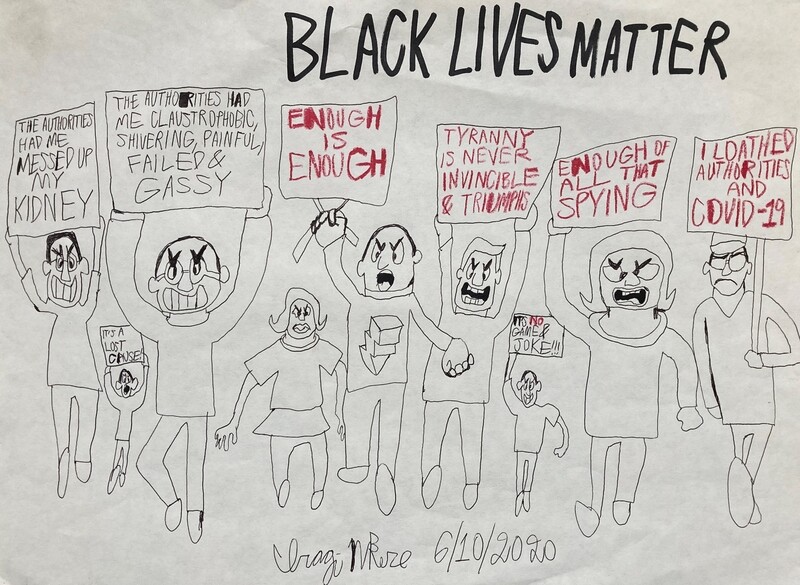 BLACK LIVES MATTER
THE AUTHORITIES
HAD ME
MESSED UP
MY
KIDNEY
THE AUTHORITIES HAD
ME CLAUSTROPHOBIC,
SHIVERING, PAINFUL,
FAILED &
GASSY
ENOUGH
IS
ENOUGH
TYRANNY
IS NEVER
INVINCIBLE
& TRIUMPHS
ENOUGH OF
ALL THAT
SPYING
I LOATHED
AUTHORITIES
AND
COVID-19
IT'S A
LOST
CAUSE!
IT'S NO
GAME &
JOKE!!!
6/10/2020